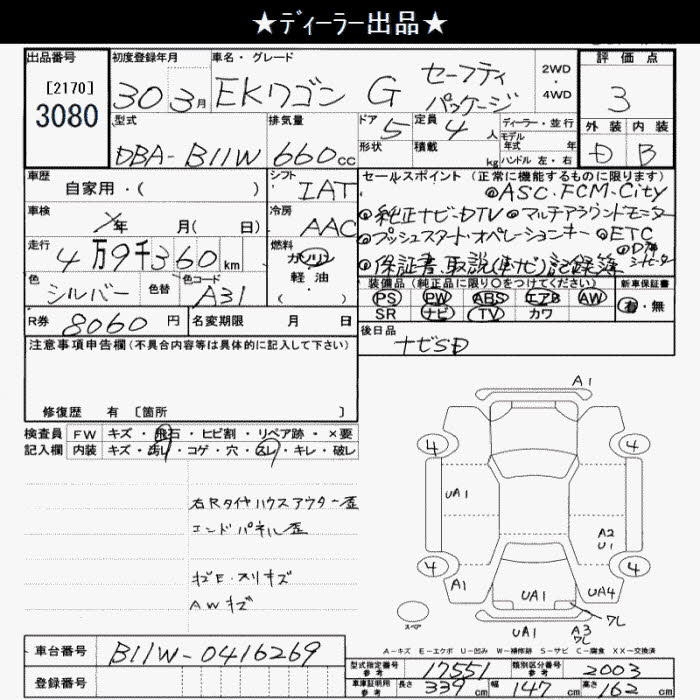 ★ディーラー出品★
出品番号 初度登録年月 車名・グレード 評価点
[2170] 30 3月 EKワゴン G セーフティ 2WD ・ 4WD 3
3080 パッケージ
型式 排気量 ドア 定員 ディーラー・並行 外装 内装
DBA-B11W 660cc 5 4人 モデル年式 年 D B
形状 積載 kg ハンドル 左・右
車歴 シフト セールスポイント (正常に機能するものに限ります)
自家用・( ) IAT ◎ASC・FCM-City
車検 年 月( 日) 冷房 AAC ◎純正ナビ-DTV ◎マルチアラウンドモニター
走行 燃料 ◎プッシュスタート・オペレーションキー ◎ETC
4万9千360km ガソリン
軽・油 ◎保証書・取説(車・ナビ)記録簿
( )
色 色替 色コード 装備品(純正品に限り○をつけてください) 新車保証書
シルバー A31 PS PW ABS エアB AW 有・無
SR ナビ TV カワ
R券 8060円 名変期限 月 日 後日品
ナビSD
注意事項申告欄(不具合内容等は具体的に記入して下さい)
修復歴 有 〔箇所 〕
検査員 FW キズ・飛石・ヒビ割・リペア跡・×要
記入欄 内装 キズ・汚レ・コゲ・穴・スレ・キレ・破レ
右Rタイヤハウスアウター歪
エンドパネル歪
キズE・スリキズ
AWキズ
A1
4 4
UA1 A2
U1
4 4
A1 UA1 UA4
ワレ
スペア UA1 A3
ワレ
A-キズ E-エクボ U-凹み W-補修跡 S-サビ C-腐食 XX-交換済
車台番号 B11W-0416269
登録番号
型式指定番号 参考 17551 類別区分番号 参考 2003
車庫証明用 参考 長さ 339cm 幅 147cm 高さ 162cm